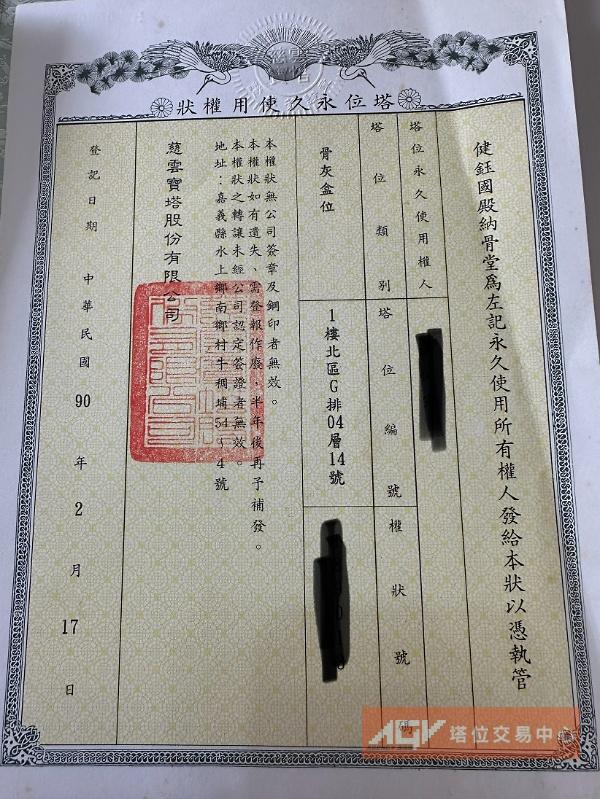 塔位永久使用權狀
健鈺國殿納骨堂為左記永久使用所有權人發給本狀以憑執管
塔位永久使用權人
塔位類別
塔位編號
權狀號碼
骨灰盒位
1樓北區G排04層14號
本權狀無公司簽章及鋼印者無效。
本權狀如有遺失、需登報作廢，半年後再予補發。
本權狀之轉讓未經公司認定簽證者無效。
地址：嘉義縣水上鄉南鄉村牛稠埔54之4號
慈雲寶塔股份有限公司
登記日期 中華民國 90 年 2 月 17 日
AGV 塔位交易中心